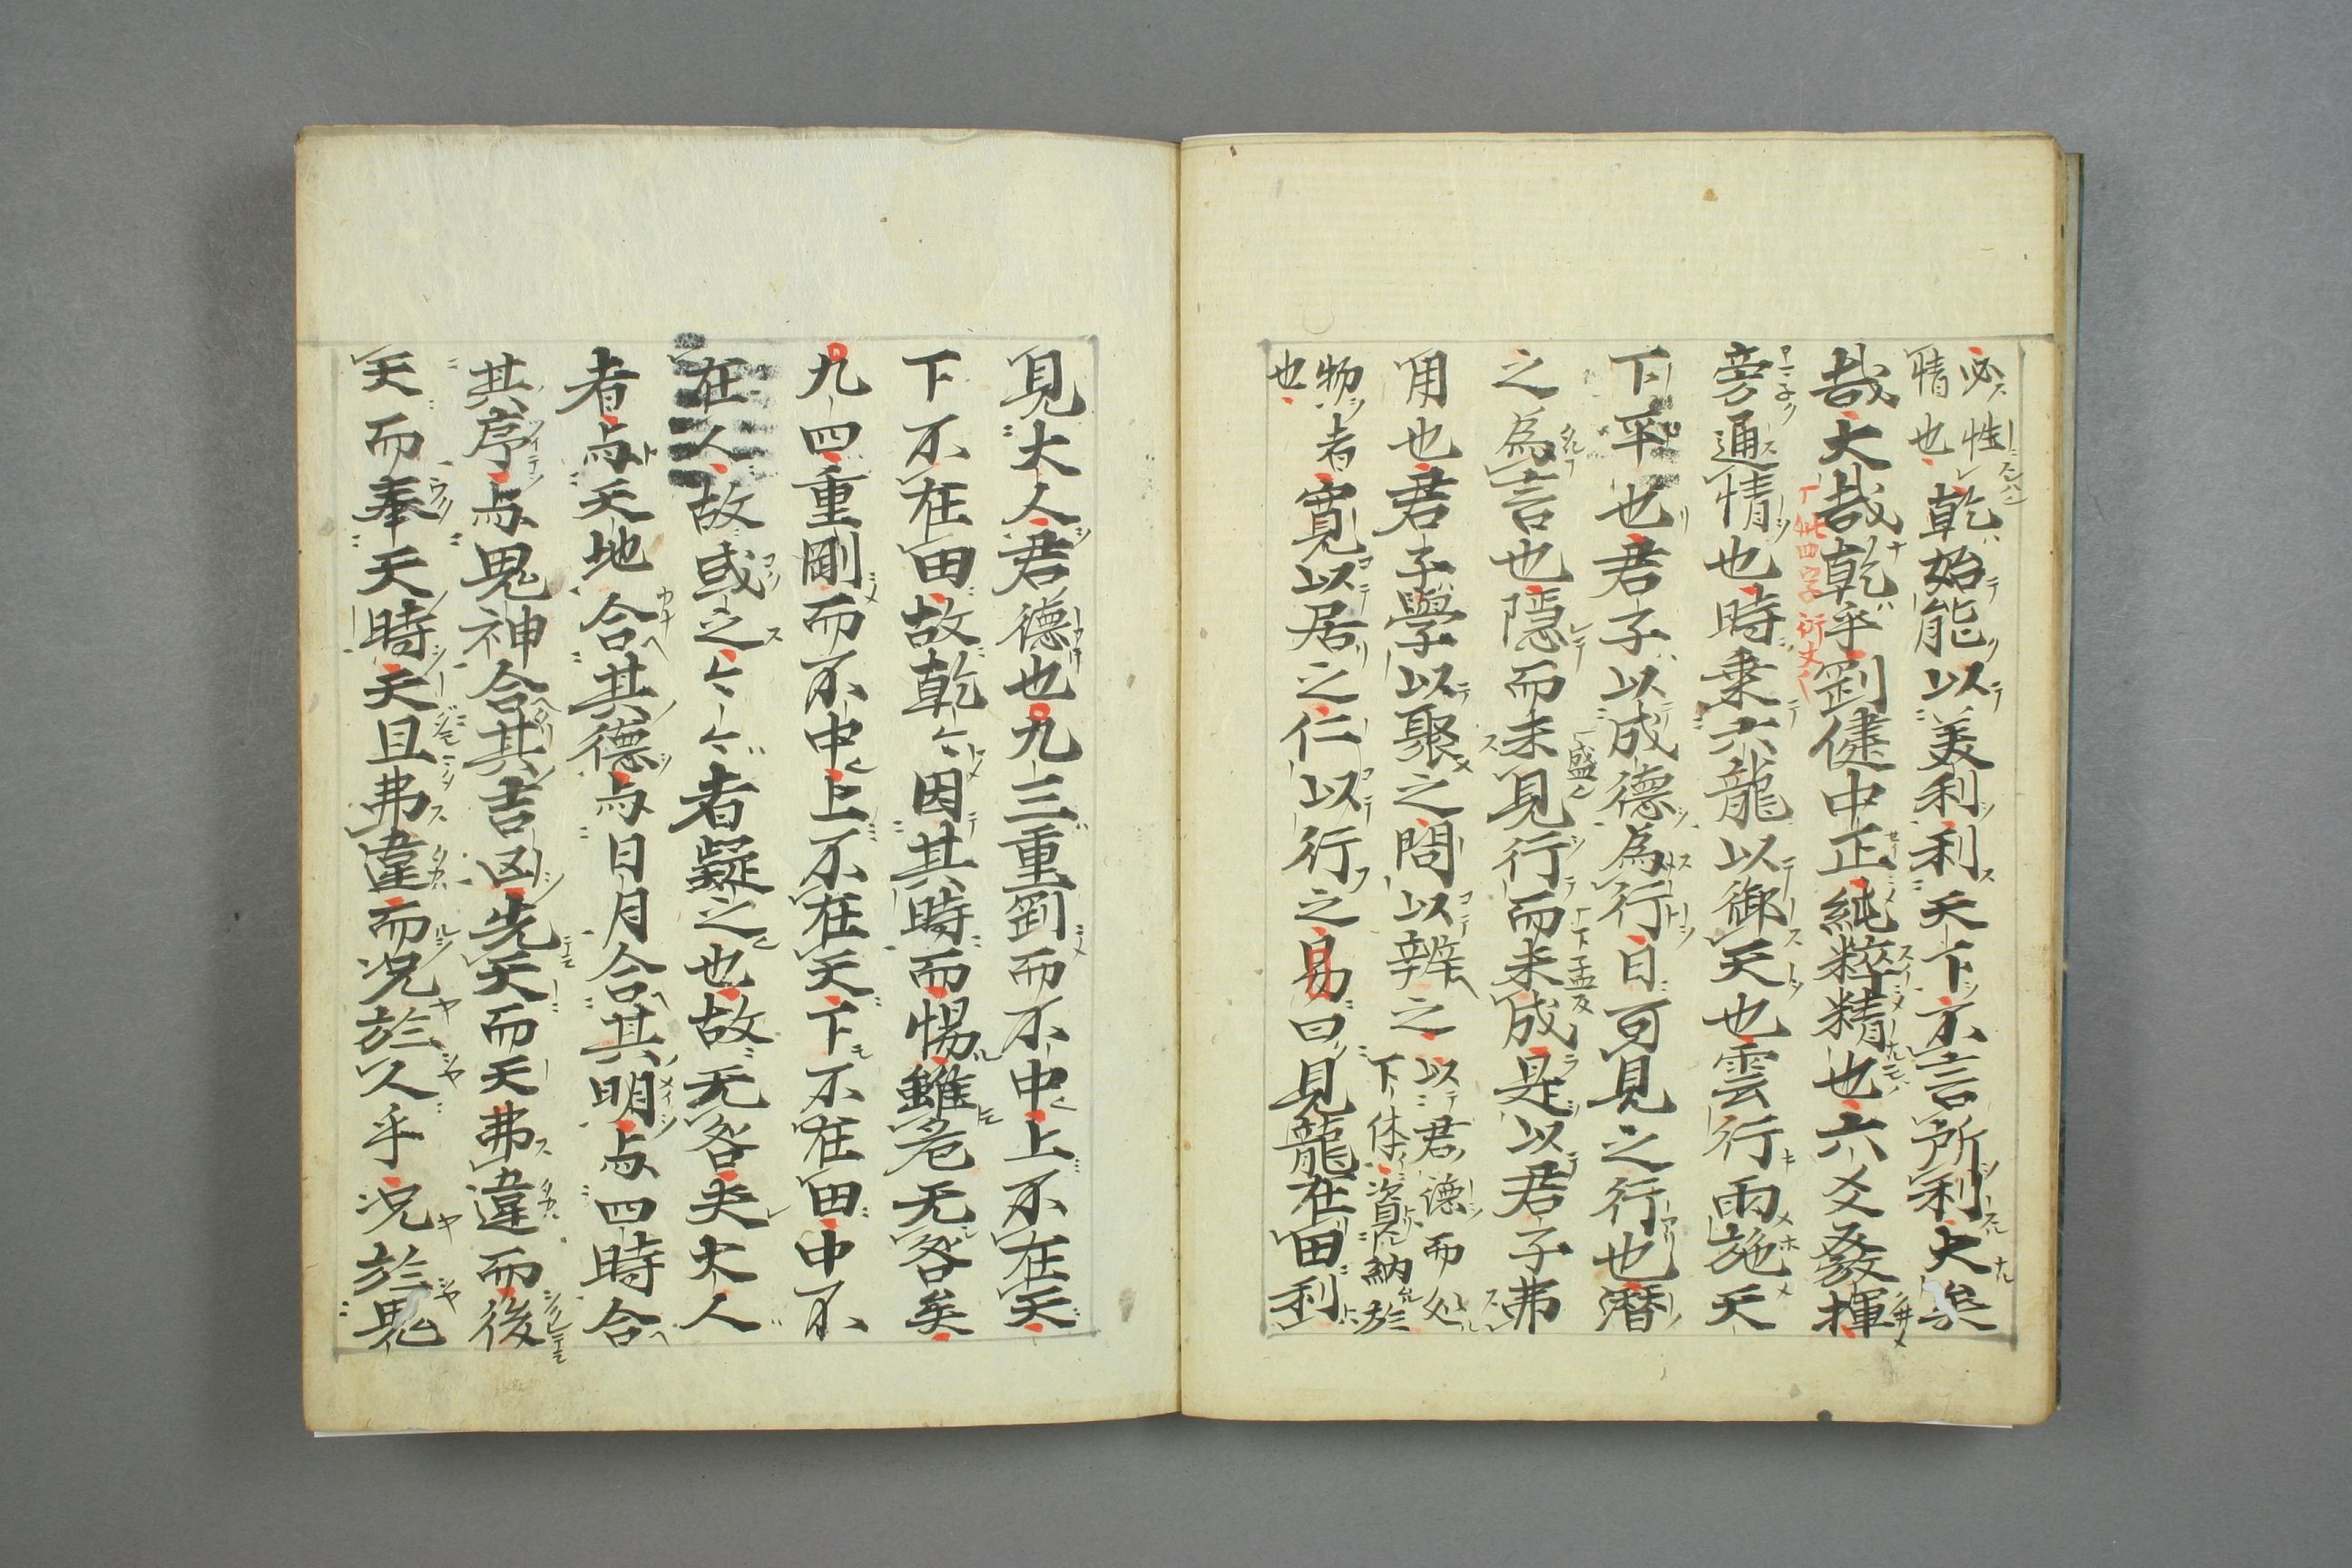 必性
情也乾始能以美利利天下不言所利大矣
哉大哉乾乎剛健中正純粹精也六爻發揮
此四字衍文
旁通情也時乗六龍以御天也雲行雨施天
下平也君子以成德為行日可見之行也潜
之為言也隠而未見行而未成是以君子弗
用也君子學以聚之問以辨之
以君德而処
下体資納於
物者
也
寬以居之仁以行之易曰見龍在田利
見大人君德也九三重剛而不中上不在天
下不在田故乾々因其時而惕雖危无咎矣
九四重剛而不中上不在天下不在田中不
在人故或之々々者疑之也故无咎夫大人
者与天地合其德与日月合其明与四時合
其序与鬼神合其吉凶先天而天弗違而後
天而奉天時天且弗違而况於人乎况於鬼